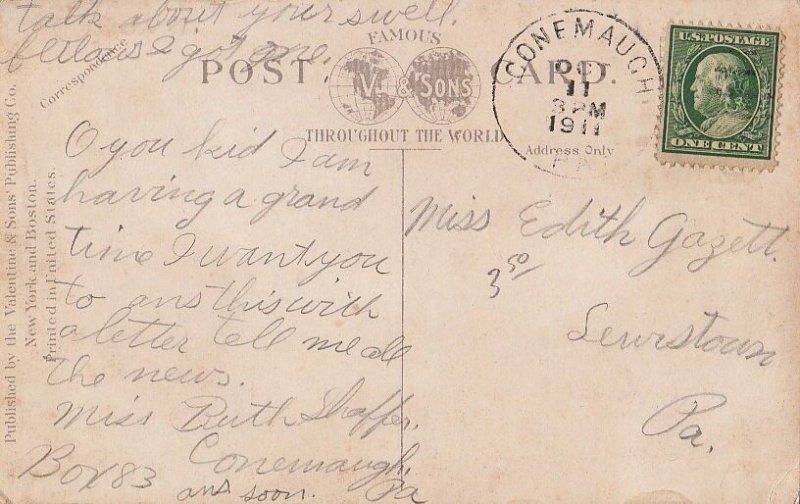 talk about your swell.
I got one.
Correspondence
FAMOUS
POST CARD.
V. & SONS
THROUGHOUT THE WORLD
Address Only
CONEMAUGH
OCT
11
3 PM
1911
PA
U.S. POSTAGE
ONE CENT
Published by the Valentine & Sons' Publishing Co.
New York and Boston.
Printed in United States.
O you kid I am
having a grand
time I want you
to ans this with
a letter tell me all
the news.
Miss Ruth Shaffer.
Conemaugh,
Box 83 Pa
ans soon.
Miss Edith Gazett.
3 50/
Lewistown
Pa.